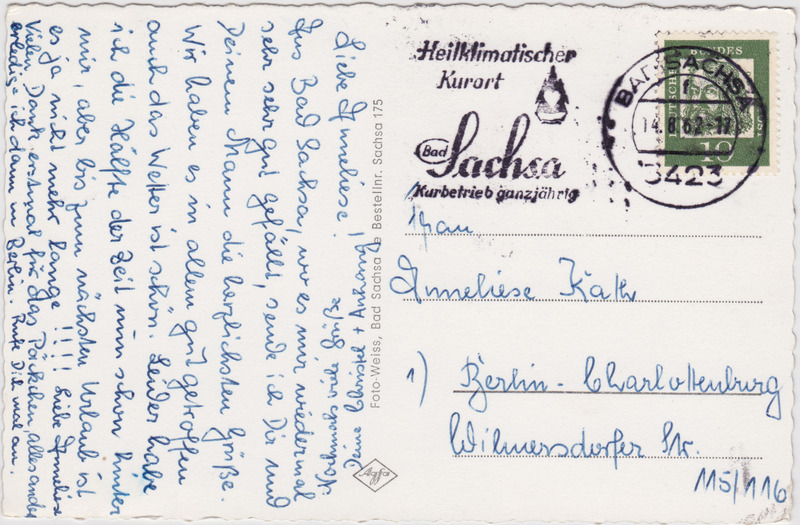 Liebe Anneliese!
Aus Bad Sachsa, wo es mir wiedermal
sehr sehr gut gefällt, sende ich Dir und
Deinem Mann die herzlichsten Grüße.
Wir haben es in allem gut getroffen
auch das Wetter ist schön. Leider habe
ich die Hälfte der Zeit nun schon hinter
mir, aber bis zum nächsten Urlaub ist
es ja nicht mehr lange!!!! Liebe Anneliese
Vielen Dank erstmal für das Päckchen, alles andere
erledige ich dann in Berlin. Rufe Dich mal an.
Deine + Angehörige
Foto-Weiss, Bad Sachsa Bestellnr. Sachsa 175
Agfa
Heilklimatischer
Kurort
Bad
Sachsa
Kurbetrieb ganzjährig
BAD SACHSA
14.8.62-17
3423
BUNDES
DEUTSCHE
10
Frau
Anneliese Kath
1) Berlin-Charlottenburg
Wilmersdorfer Str.
115/116